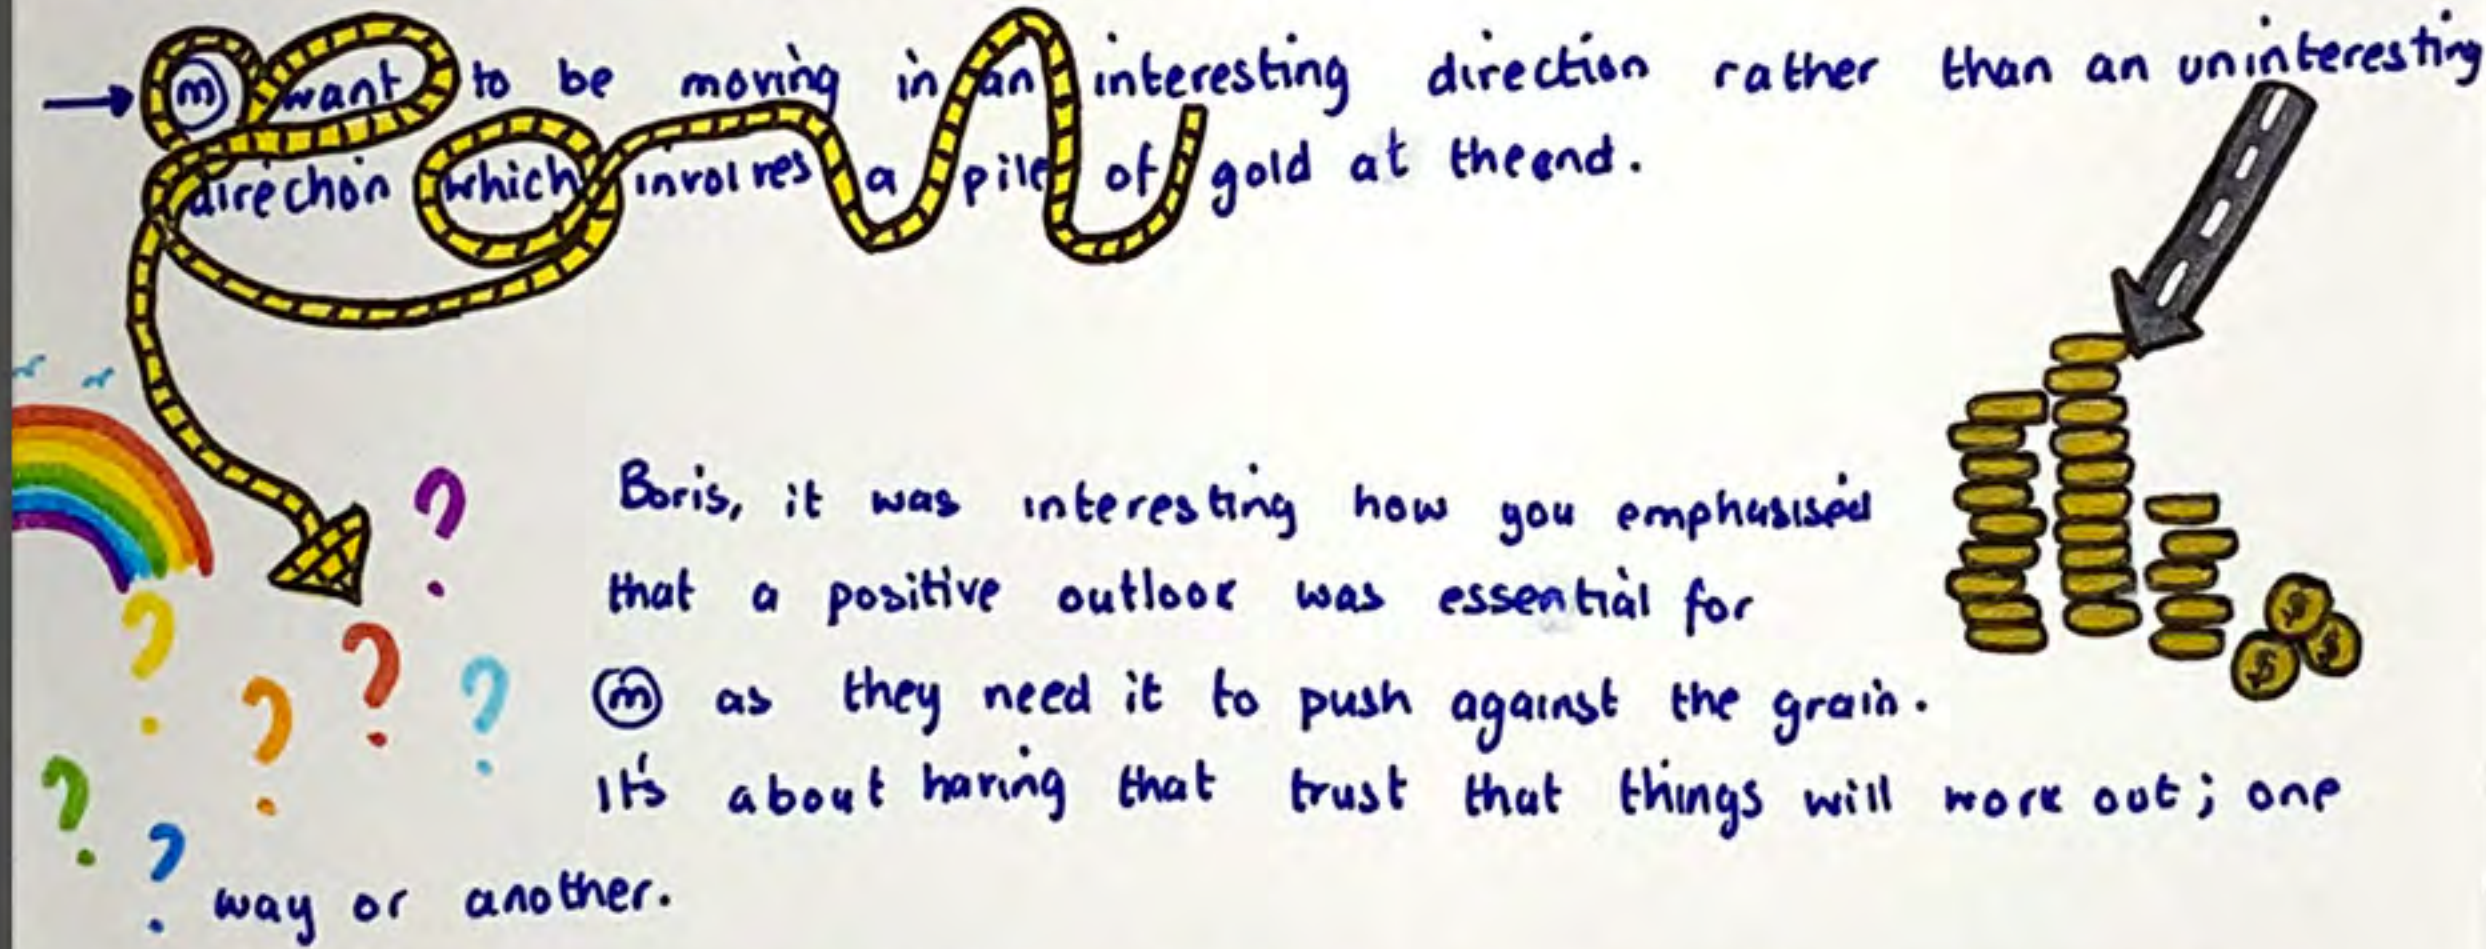 → ⓜ want to be moving in an interesting direction rather than an uninteresting
direction which involves a pile of gold at the end.
Boris, it was interesting how you emphasised
that a positive outlook was essential for
ⓜ as they need it to push against the grain.
It's about having that trust that things will work out; one
way or another.
? ? ? ? ? ? ?
$ $ $